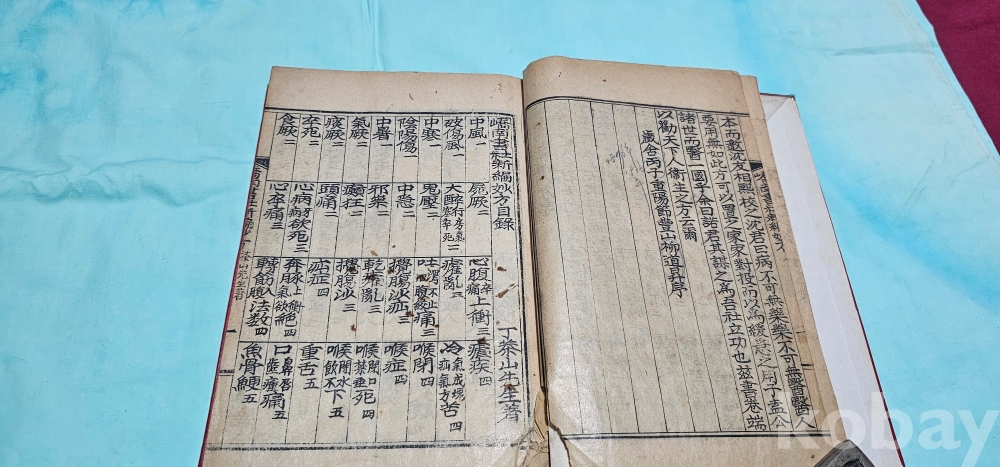 本而數沈友相熙校之沈君曰病不可無藥藥不可無醫醫人
要用無如此方可以置之家家對投而以爲緩急之用子盍公
諸世而醫一國乎余曰諾君其謀之爲吾社立功也玆書卷端
以勸天下人衛生之方云爾
歲舍丙子重陽節豐山柳道 序
嶠南書社新編妙方目錄
丁茶山先生著
中風一 屍厥二 心腹卒痛上衝三 瘧疾四
傷一 大醉附房氣卒死二 癨亂三 冷疝氣方 氣成塊苦四
中寒一 鬼魘二 吐瀉不止腹絞痛三 喉閉四
陰陽傷一 中惡二 攪腸沙疝三 喉症四
中暑一 邪祟二 乾癨亂三 喉閉口噤垂死四
氣厥二 癲狂二 攪腸沙四 喉閉水飮不下五
痰厥二 頭痛二 疝症四 重舌五
卒死二 心病痛欲死三 奔豚上衝 氣欲絶四 口鼻 齒瘡痛五
食厥二 心卒痛三 轉筋腹 法數四 魚骨鯁五
kobay